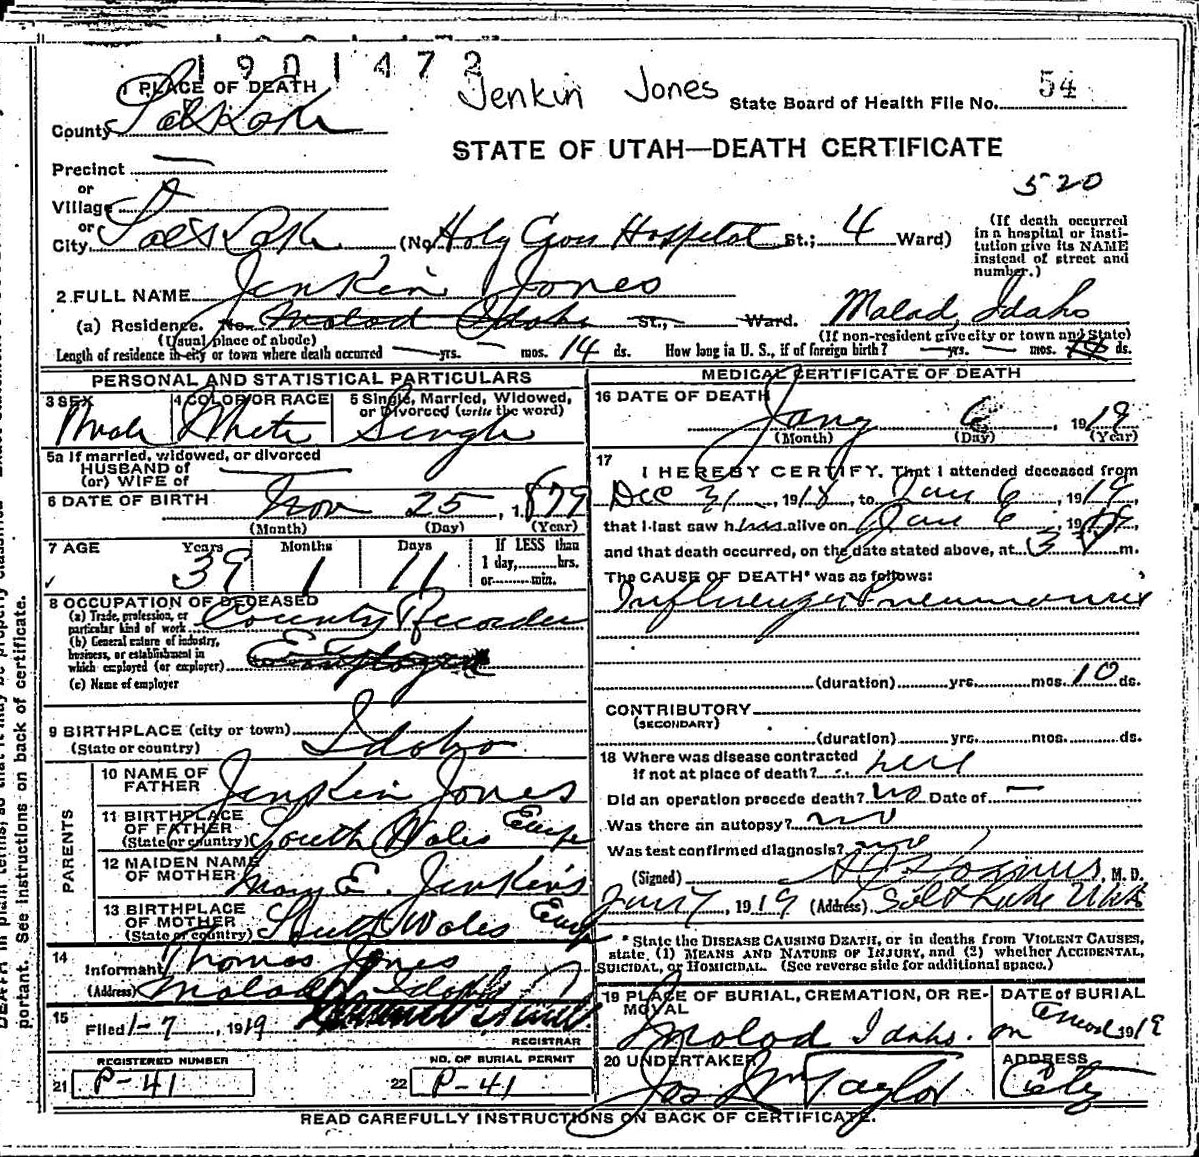 1901473
1 PLACE OF DEATH
Jenkin Jones
State Board of Health File No. 54
County Salt Lake
STATE OF UTAH—DEATH CERTIFICATE
Precinct
or
Village
520
or
City Salt Lake (No. Holy Cross Hospital St.; 4 Ward)
(If death occurred in a hospital or institution give its NAME instead of street and number.)
2 FULL NAME Jenkin Jones
(a) Residence. No. Malad Idaho St., Ward. Malad, Idaho
(Usual place of abode) (If non-resident give city or town and State)
Length of residence in city or town where death occurred — yrs. — mos. 14 ds. How long in U. S., if of foreign birth? — yrs. — mos. ds.
PERSONAL AND STATISTICAL PARTICULARS
3 SEX 4 COLOR OR RACE 5 Single, Married, Widowed, or Divorced (write the word)
Male White Single
5a If married, widowed, or divorced
HUSBAND of
(or) WIFE of
6 DATE OF BIRTH Nov 25, 1879
(Month) (Day) (Year)
7 AGE Years Months Days If LESS than
1 day, hrs.
or min.
39 1 11
8 OCCUPATION OF DECEASED
(a) Trade, profession, or particular kind of work County Recorder
(b) General nature of industry, business, or establishment in which employed (or employer)
(c) Name of employer
9 BIRTHPLACE (city or town)
(State or country) Idaho
PARENTS
10 NAME OF FATHER Jenkin Jones
11 BIRTHPLACE OF FATHER (State or country) South Wales Europe
12 MAIDEN NAME OF MOTHER Mary E. Jenkins
13 BIRTHPLACE OF MOTHER (State or country) South Wales Europe
14
Informant Thomas Jones
(Address) Malad Idaho
15
Filed 1-7, 1919
REGISTRAR
REGISTERED NUMBER NO. OF BURIAL PERMIT
21 P-41 22 P-41
MEDICAL CERTIFICATE OF DEATH
16 DATE OF DEATH
Jany 6, 1919
(Month) (Day) (Year)
17
I HEREBY CERTIFY, That I attended deceased from
Dec 31, 1918, to Jan 6, 1919,
that I last saw him alive on Jan 6, 1919,
and that death occurred, on the date stated above, at 3 m.
The CAUSE OF DEATH* was as follows:
Influenza Pneumonia
(duration) yrs. mos. 10 ds.
CONTRIBUTORY
(SECONDARY)
(duration) yrs. mos. ds.
18 Where was disease contracted
if not at place of death? here
Did an operation precede death? no Date of —
Was there an autopsy? no
Was test confirmed diagnosis?
(Signed) , M. D.
Jan 7, 1919 (Address) Salt Lake Utah
* State the DISEASE CAUSING DEATH, or in deaths from VIOLENT CAUSES, state, (1) MEANS AND NATURE OF INJURY, and (2) whether ACCIDENTAL, SUICIDAL, or HOMICIDAL. (See reverse side for additional space.)
19 PLACE OF BURIAL, CREMATION, OR REMOVAL DATE of BURIAL
Malad Idaho. 1919
20 UNDERTAKER ADDRESS
Jos Wm Taylor City
READ CAREFULLY INSTRUCTIONS ON BACK OF CERTIFICATE.
portant. See instructions on back of certificate.